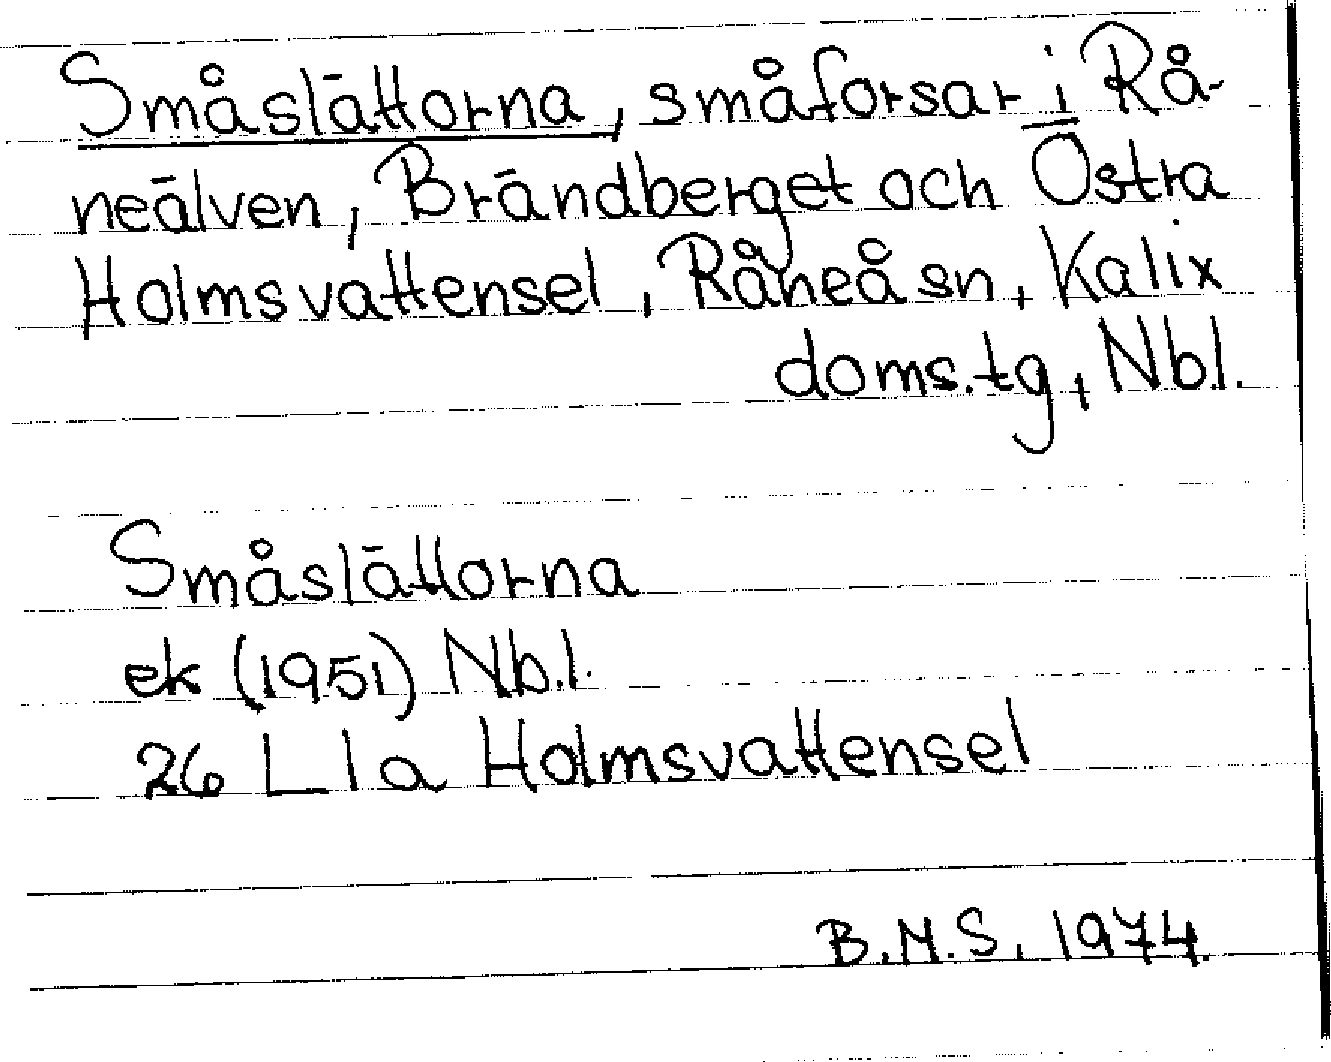 Småslättorna, småforsar i Rå-
neälven, Brändberget och Östra
Holmsvattensel, Råneå sn, Kalix
doms.tg, Nbl.
Småslättorna
ek (1951) Nb.l.
26 L 1a Holmsvattensel
B.M.S. 1974.